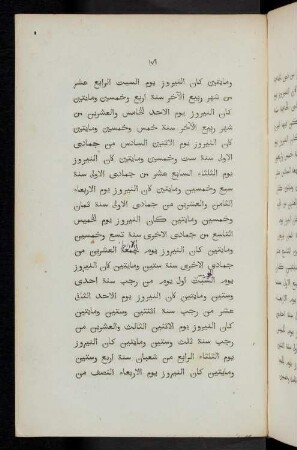 ١٠٩
ومايتين كان النيروز يوم السبت الرابع عشر
من شهر ربيع الآخر سنة اربع وخمسين ومايتين
كان النيروز يوم الاحد الخامس والعشرين من
شهر ربيع الآخر سنة خمس وخمسين ومايتين
كان النيروز يوم الاثنين السادس من جمادى
الاول سنة ست وخمسين ومايتين كان النيروز
يوم الثلثاء السابع عشر من جمادى الاول سنة
سبع وخمسين ومايتين كان النيروز يوم الاربعاء
الثامن والعشرين من جمادى الاول سنة ثمان
وخمسين ومايتين كان النيروز يوم الخميس
التاسع من جمادى الاخرى سنة تسع وخمسين
ومايتين كان النيروز يوم الجمعة العشرين من
جمادى الاخرى سنة ستين ومايتين كان النيروز
يوم السبت اول يوم من رجب سنة احدى
وستين ومايتين كان النيروز يوم الاحد الثانى
عشر من رجب سنة اثنتين وستين ومايتين كان
النيروز يوم الاثنين الثالث والعشرين من
رجب سنة ثلث وستين ومايتين كان النيروز
يوم الثلثاء الرابع من شعبان سنة اربع وستين
ومايتين كان النيروز يوم الاربعاء النصف من